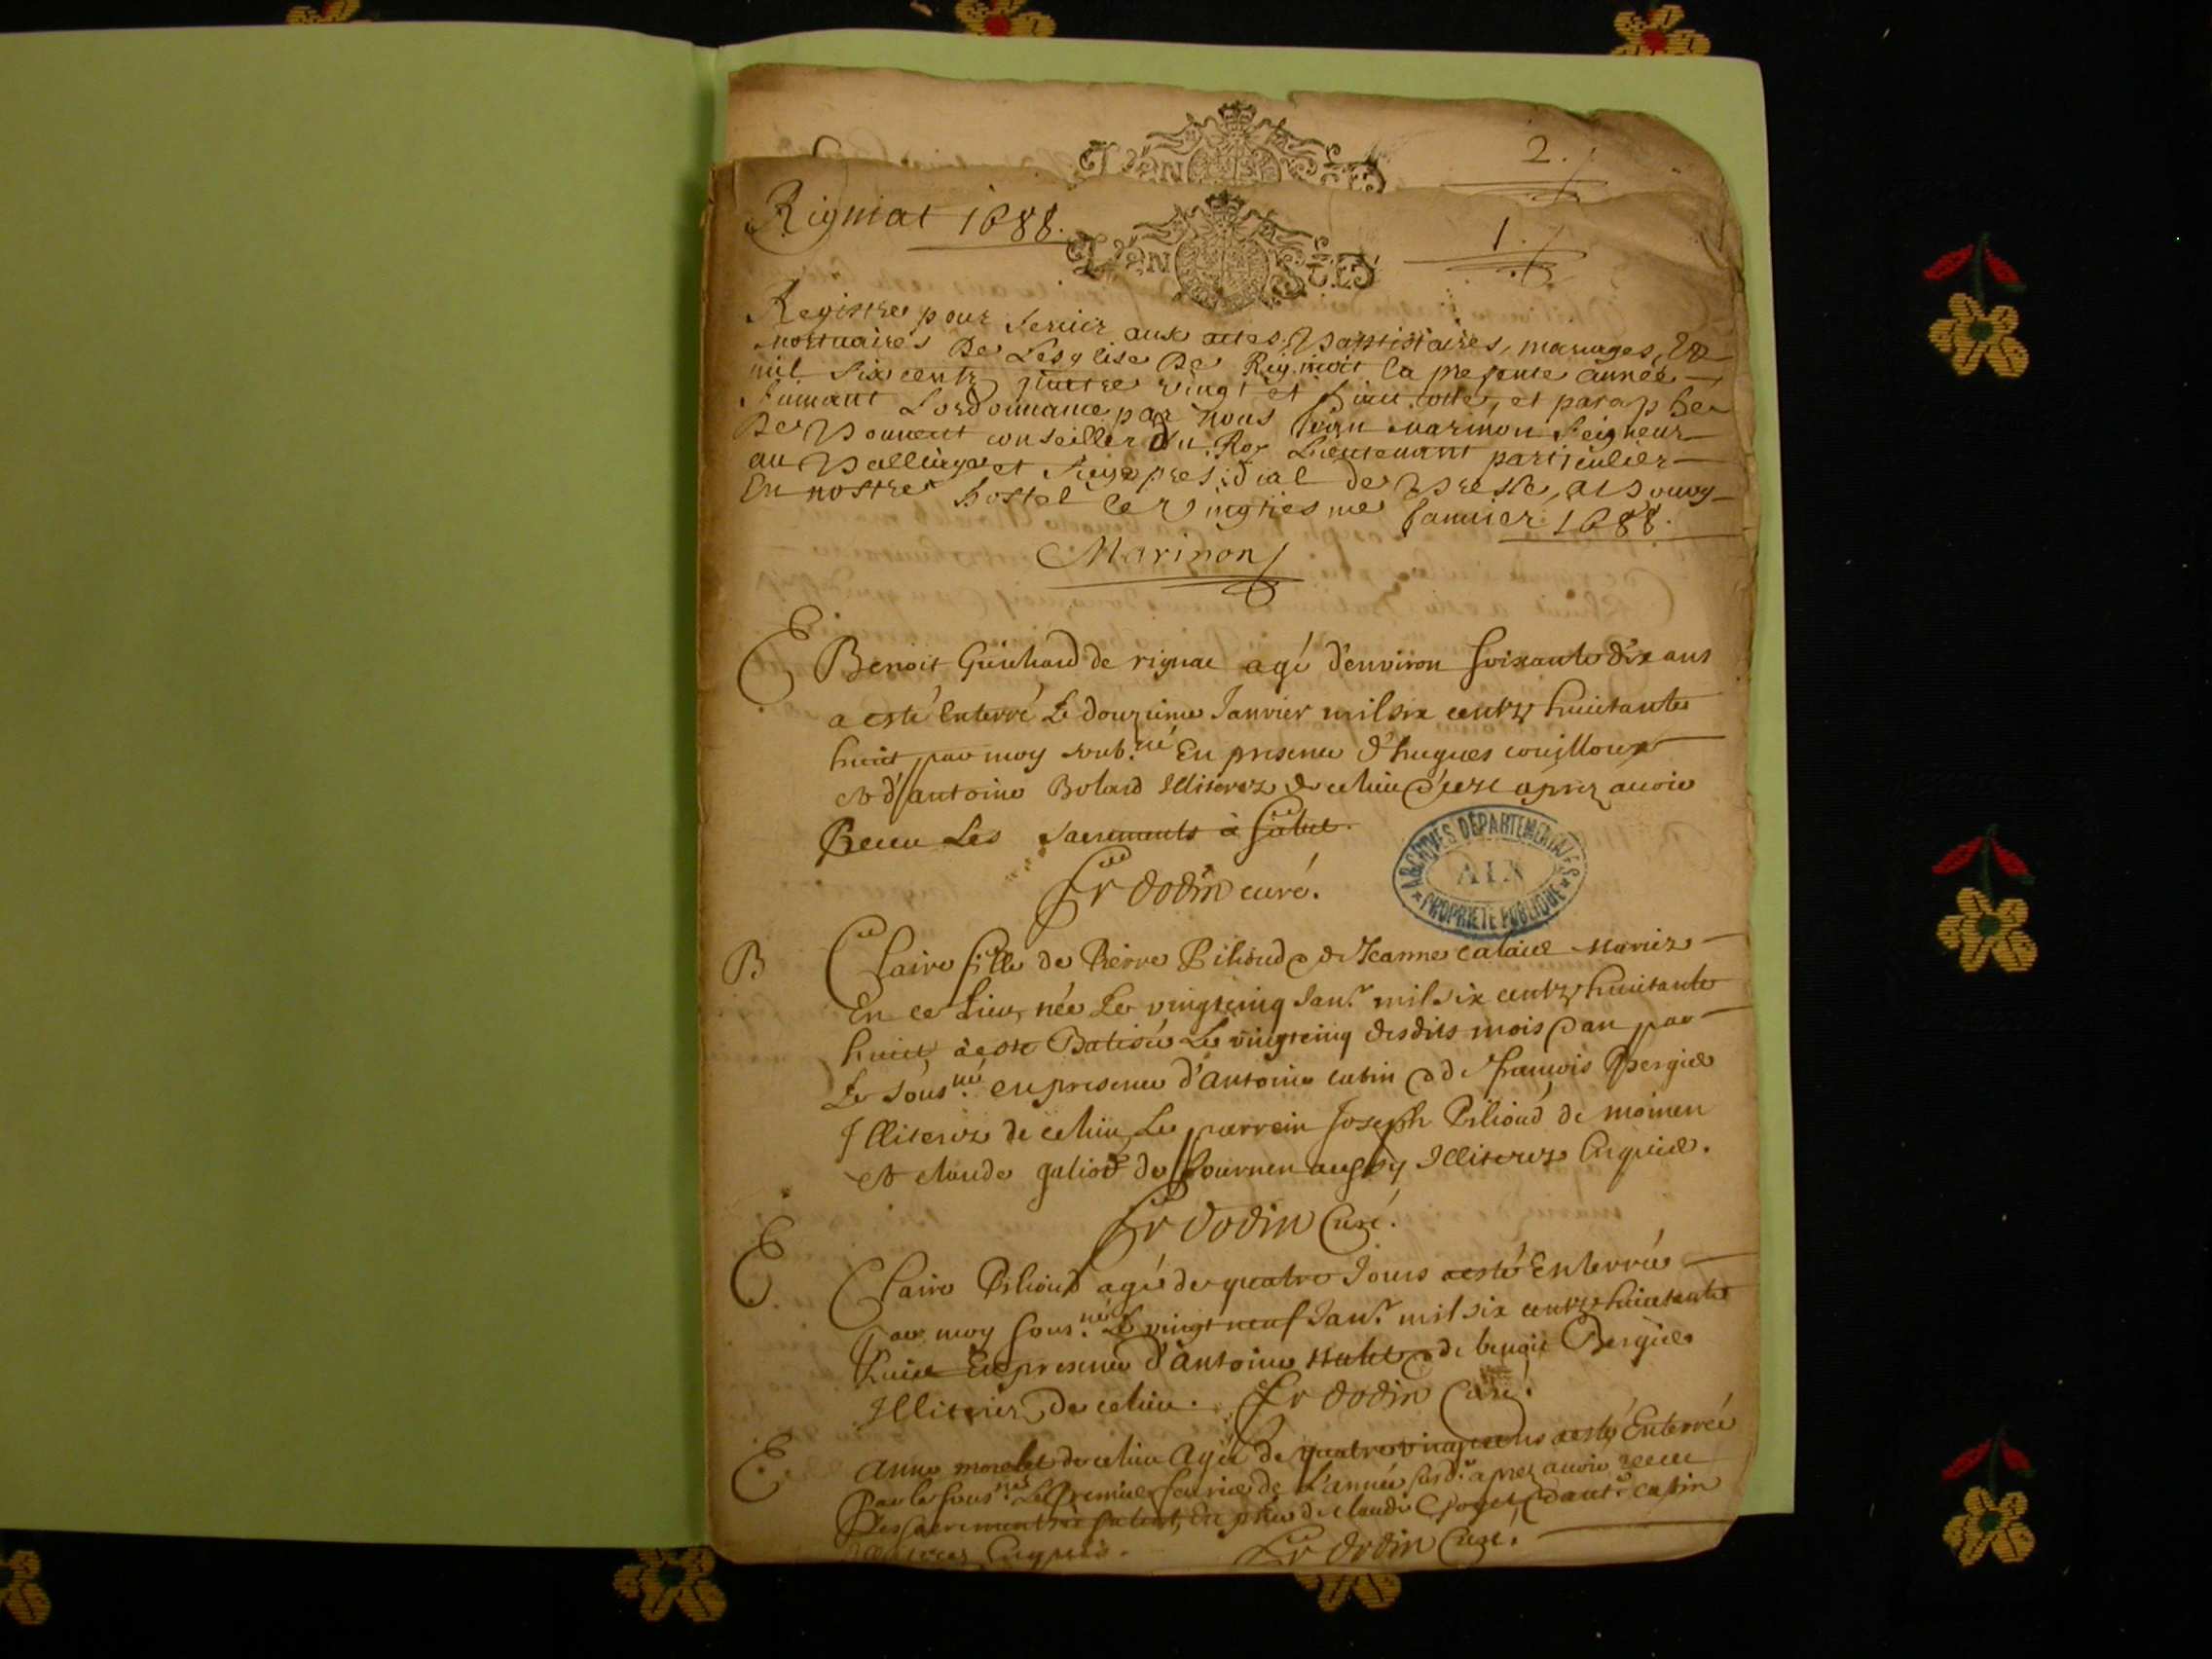 2.
Rigniat 1688.
1.
Registre pour servir aux actes Baptistaires, mariages, &
mortuaires De Lesglise De Rigniat la presente année
mil six centz quattre vingt et huict cotté, et paraphé
suivant Lordonnance par nous Jean marinon seigneur
De Bouvent conseiller du Roy Lieutenant particulier
au Balliage et siege presidial de Bresse, a Bourg
En nostre hostel le vingtiesme Janvier 1688.
Marinon
E
Benoit Guichard de rignac agé d'environ soixante dix ans
a esté Enterré Le douzieme Janvier mil six centz huictante
huict par moy soub.né En presence d'hugues couilloux
et d'antoine Bolard Illiterez de ce lieu apres avoir
Receu Les sacrements
fr dodin curé.
ARCHIVES DÉPARTEMENTALES
AIN
PROPRIÉTÉ PUBLIQUE
B
Claire fille de Pierre Piliond & de Jeanne mariez
En ce Lieu, née Le vingtcinq Jan.r mil six centz huictante
huict, a esté Batisée Le vingtcinq desdits mois & an par
Le sous.né en presence d'antoine cutin & de françois Bergier
Illiterez de ce lieu, Le parrein Joseph Piliond de moinen
et claude galiod de Journen aussy Illiterez Enquis.
fr dodin Curé.
E
Claire Piliond agée de quatre Jours a esté Enterrée
Par moy sous.né Le vingt neuf Jan.r mil six centz huictante
huict En presence d'antoine & de benoit Bergier
Illiterez de ce lieu. fr dodin Curé.
E
anne morelet de ce lieu Agée de quatrevingts ans a esté Enterrée
Par le sous.né Le Premier fevrier de L'année susd.e apres avoir receu
Les sacrements de claude & d'ant.e cutin
Illiterez Enquis. fr dodin Curé.